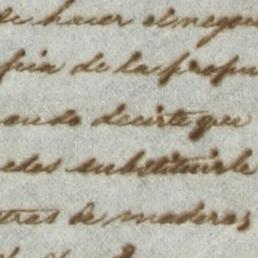 de hacer el mayor
pia de la propu
ando decirte que
edes substituirle
tras de maderas